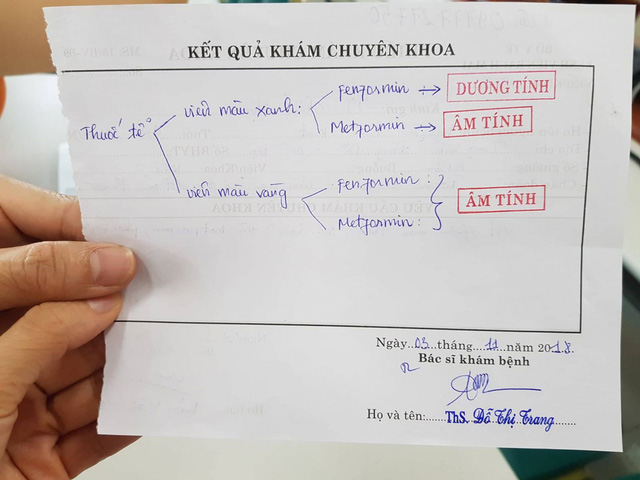 KẾT QUẢ KHÁM CHUYÊN KHOA
Thuốc tễ
viên màu xanh:
Fenformin → DƯƠNG TÍNH
Metformin → ÂM TÍNH
viên màu vàng
Fenformin :
Metformin :
ÂM TÍNH
Ngày...03...tháng....11...năm 2018.
Bác sĩ khám bệnh
Họ và tên:.....ThS. Đỗ Thị Trang